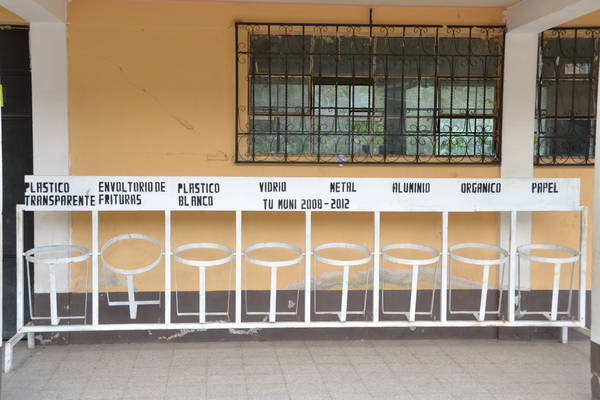 PLASTICO TRANSPARENTE
ENVOLTORIO DE FRITURAS
PLASTICO BLANCO
VIDRIO
METAL
ALUMINIO
ORGANICO
PAPEL
TU MUNI 2008-2012